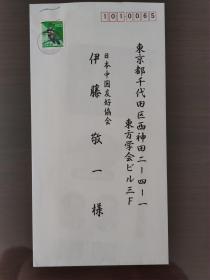 1010065
東京都千代田区西神田二ー四ー一
東方学会ビル三F
日本中国友好協会
伊藤敬一様